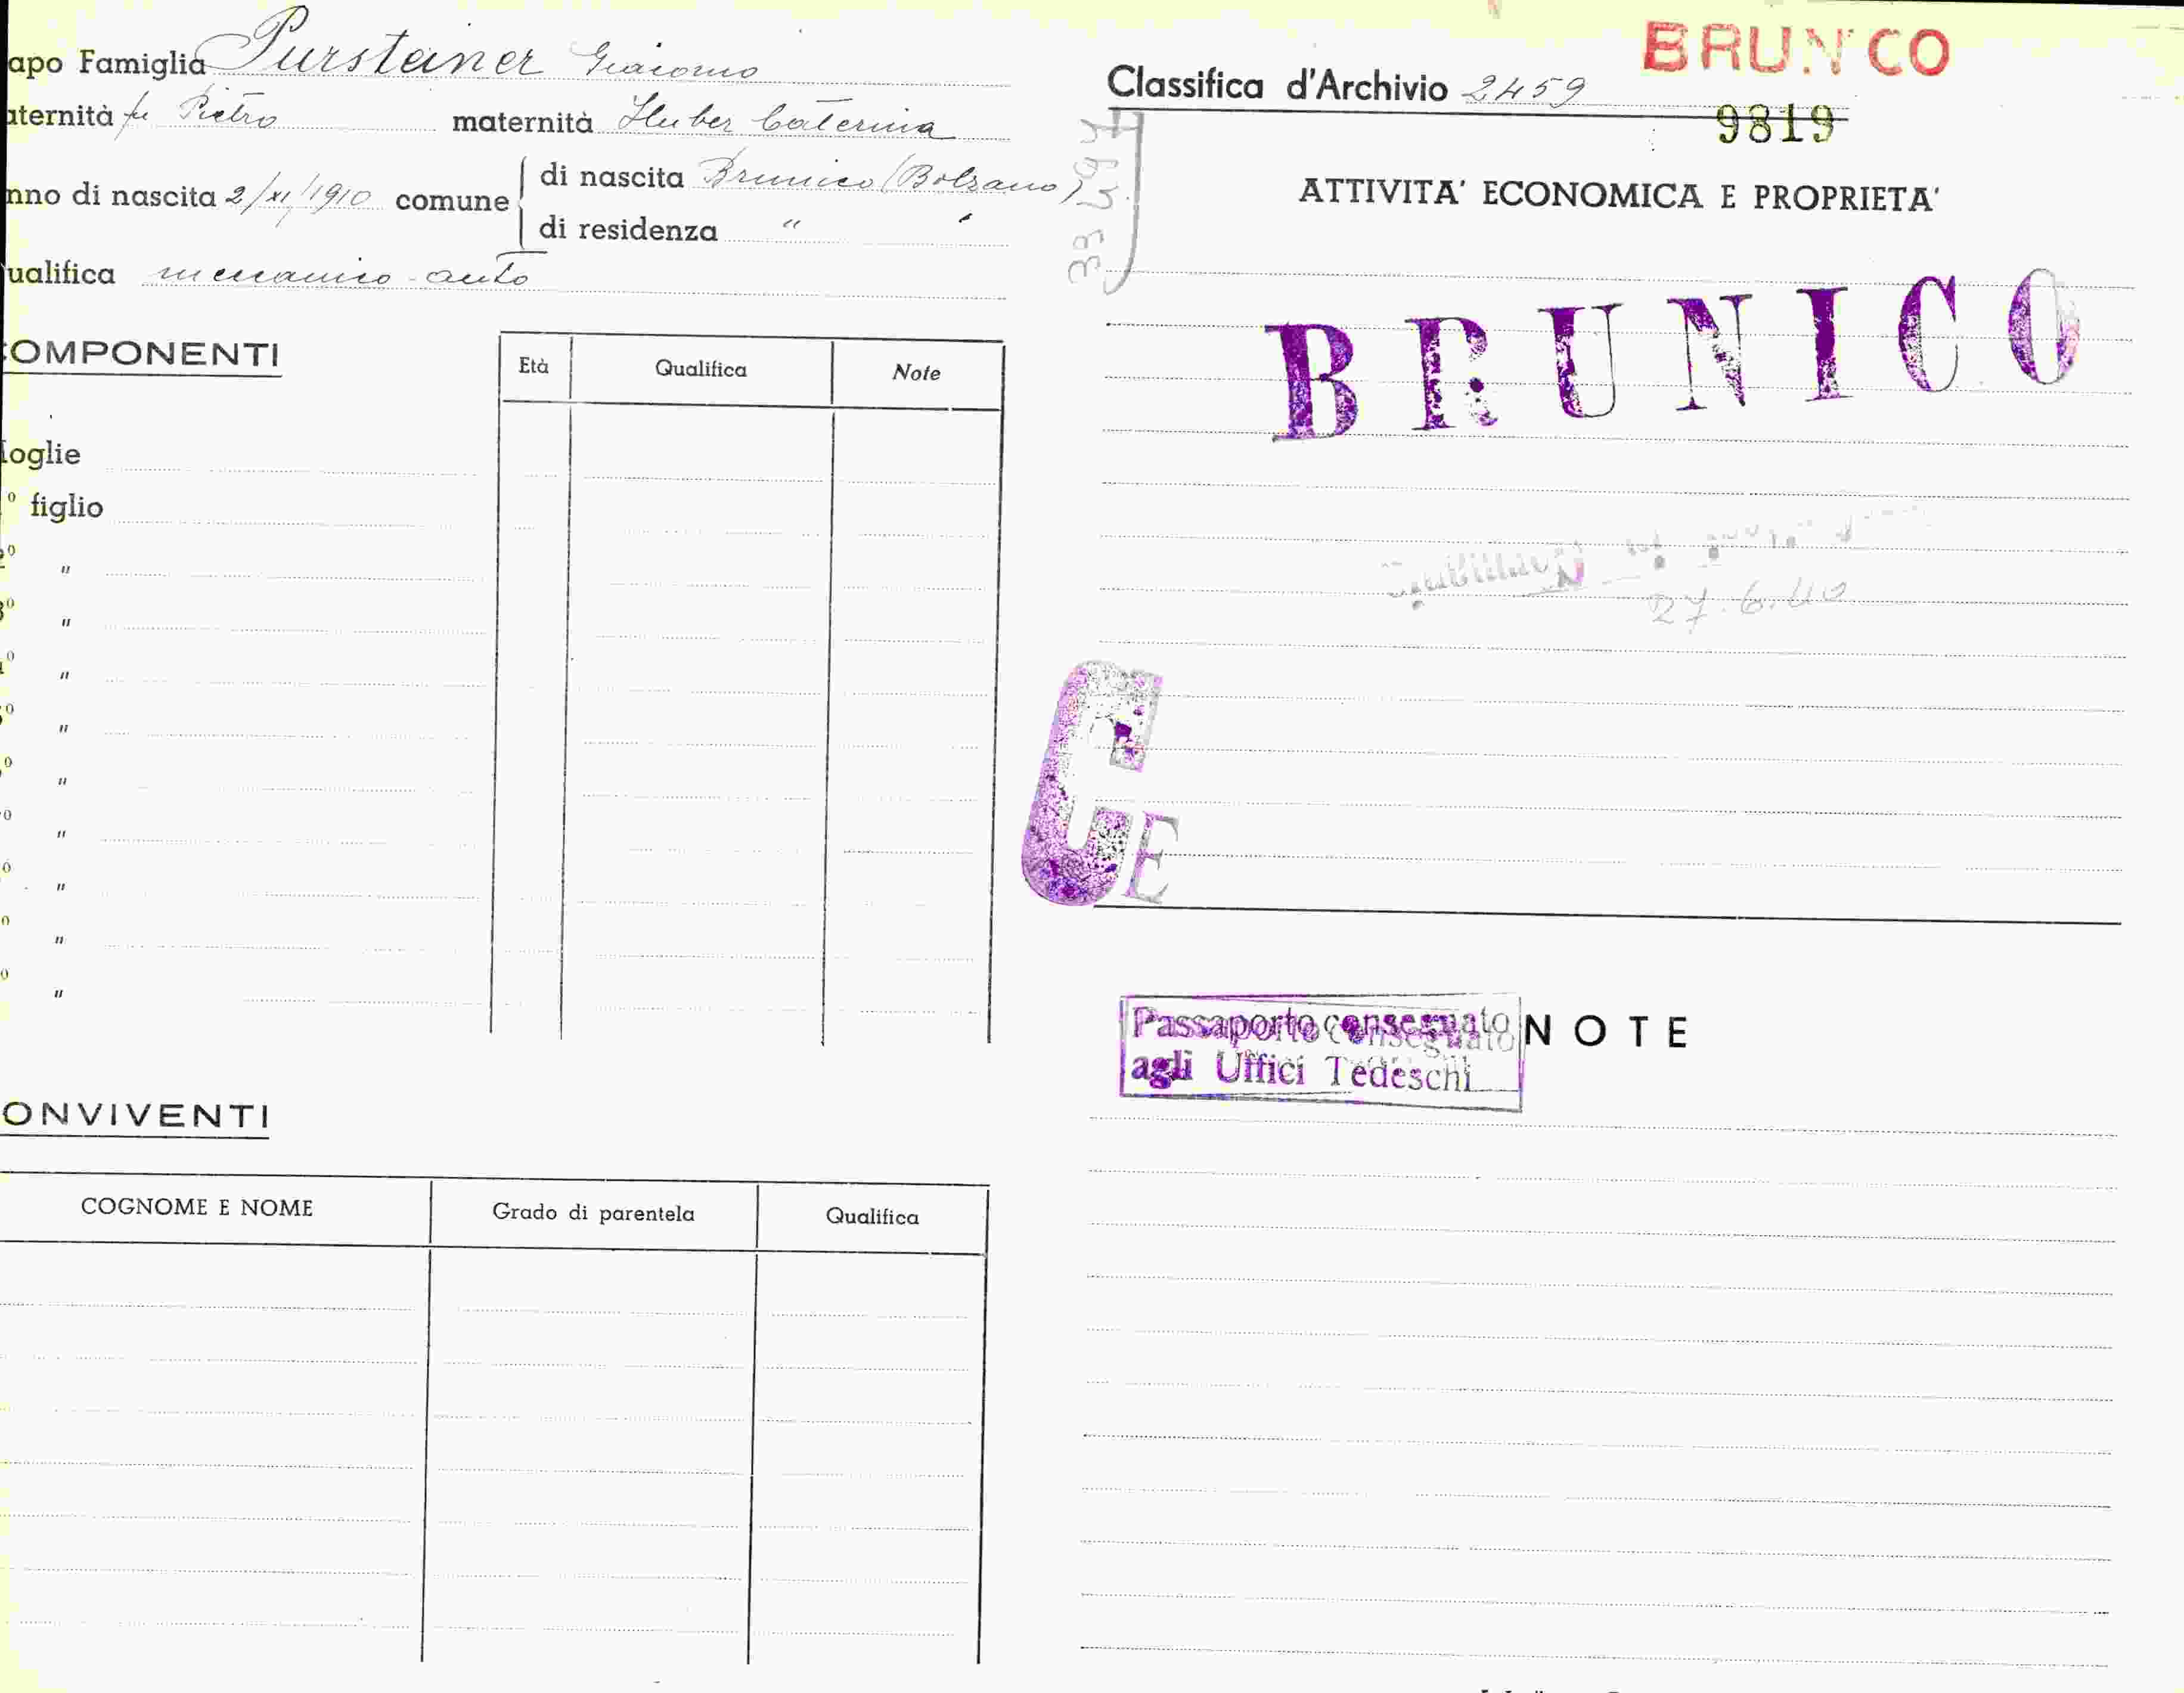 apo Famiglia Pursteiner Giacomo
aternità fu Pietro maternità Huber Caterina
nno di nascita 2/XI/1910 comune di nascita Brunico (Bolzano)
di residenza " "
ualifica meccanico-auto
OMPONENTI
Età Qualifica Note
oglie
° figlio
° "
3° "
° "
° "
° "
° "
° "
° "
° "
ONVIVENTI
COGNOME E NOME Grado di parentela Qualifica
BRUNCO
Classifica d'Archivio 2459
9819
ATTIVITA' ECONOMICA E PROPRIETA'
BRUNICO
27.6.40
G E
Passaporto consegnato
agli Uffici Tedeschi
NOTE